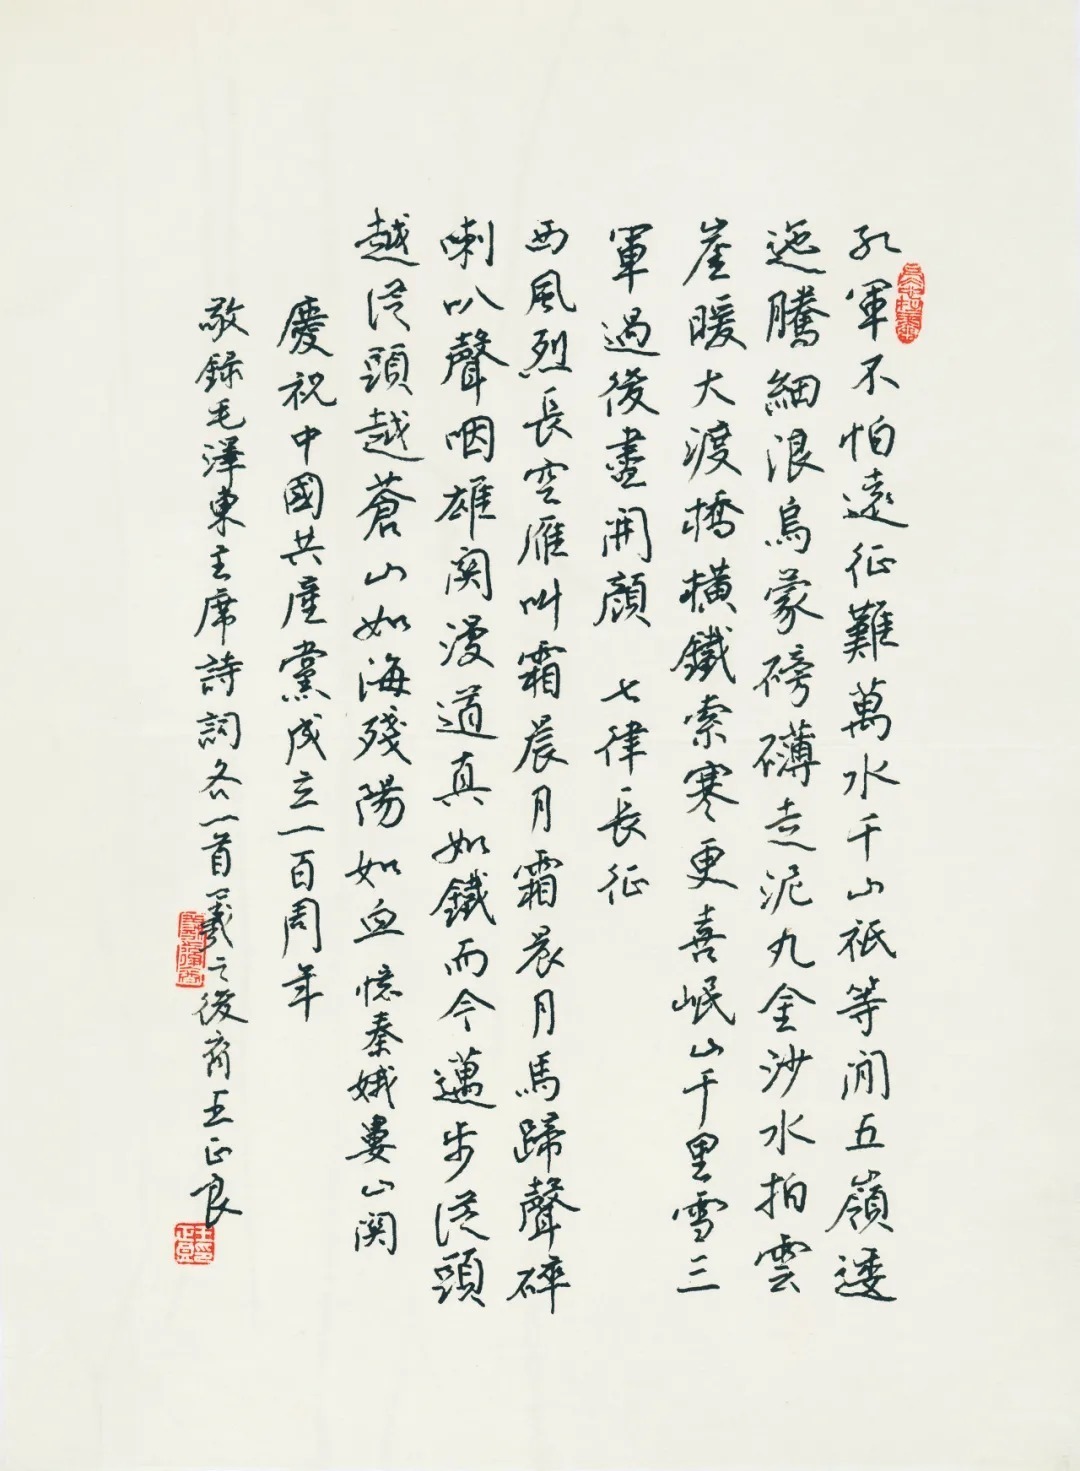 紅軍不怕遠征難萬水千山祇等閒五嶺逶
迤騰細浪烏蒙磅礴走泥丸金沙水拍雲
崖暖大渡橋橫鐵索寒更喜岷山千里雪三
軍過後盡開顏 七律長征
西風烈長空雁叫霜晨月霜晨月馬蹄聲碎
喇叭聲咽雄関漫道真如鐵而今邁步從頭
越從頭越蒼山如海殘陽如血 憶秦娥婁山関
慶祝中國共產黨成立一百周年
敬錄毛澤東主席詩詞各一首羲之後裔王正良